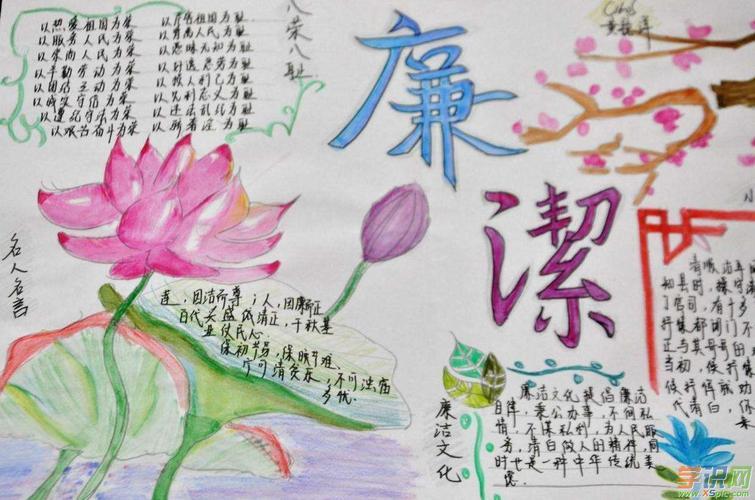 以热爱祖国为荣 以危害祖国为耻
以服务人民为荣 以背离人民为耻
人民为荣 以愚昧无知为耻
以辛勤劳动为荣 以好逸恶劳为耻
以团结互动为荣 以损人利己为耻
以诚实守信为荣 以见利忘义为耻
以遵纪守法为荣 以违法乱纪为耻
以艰苦奋斗为荣 以骄奢淫为耻
八荣八耻
廉
潔
名人名言
莲，因洁而尊；人，因廉而正
百代关盛做清正，千秋基
业仗民心。
保初节易，保晚节难
宁可清贫乐，不可浊富
多忧。
廉洁文化
廉洁文化提倡廉洁
自律，秉公办事，不徇私
情，不谋私利，为人民服
务，清白做人的精神，同
时也是一种中华传统美
德。
知县时，
了官司，有十多
都闭门
正与其哥哥的
当初，
代清白，
学识网